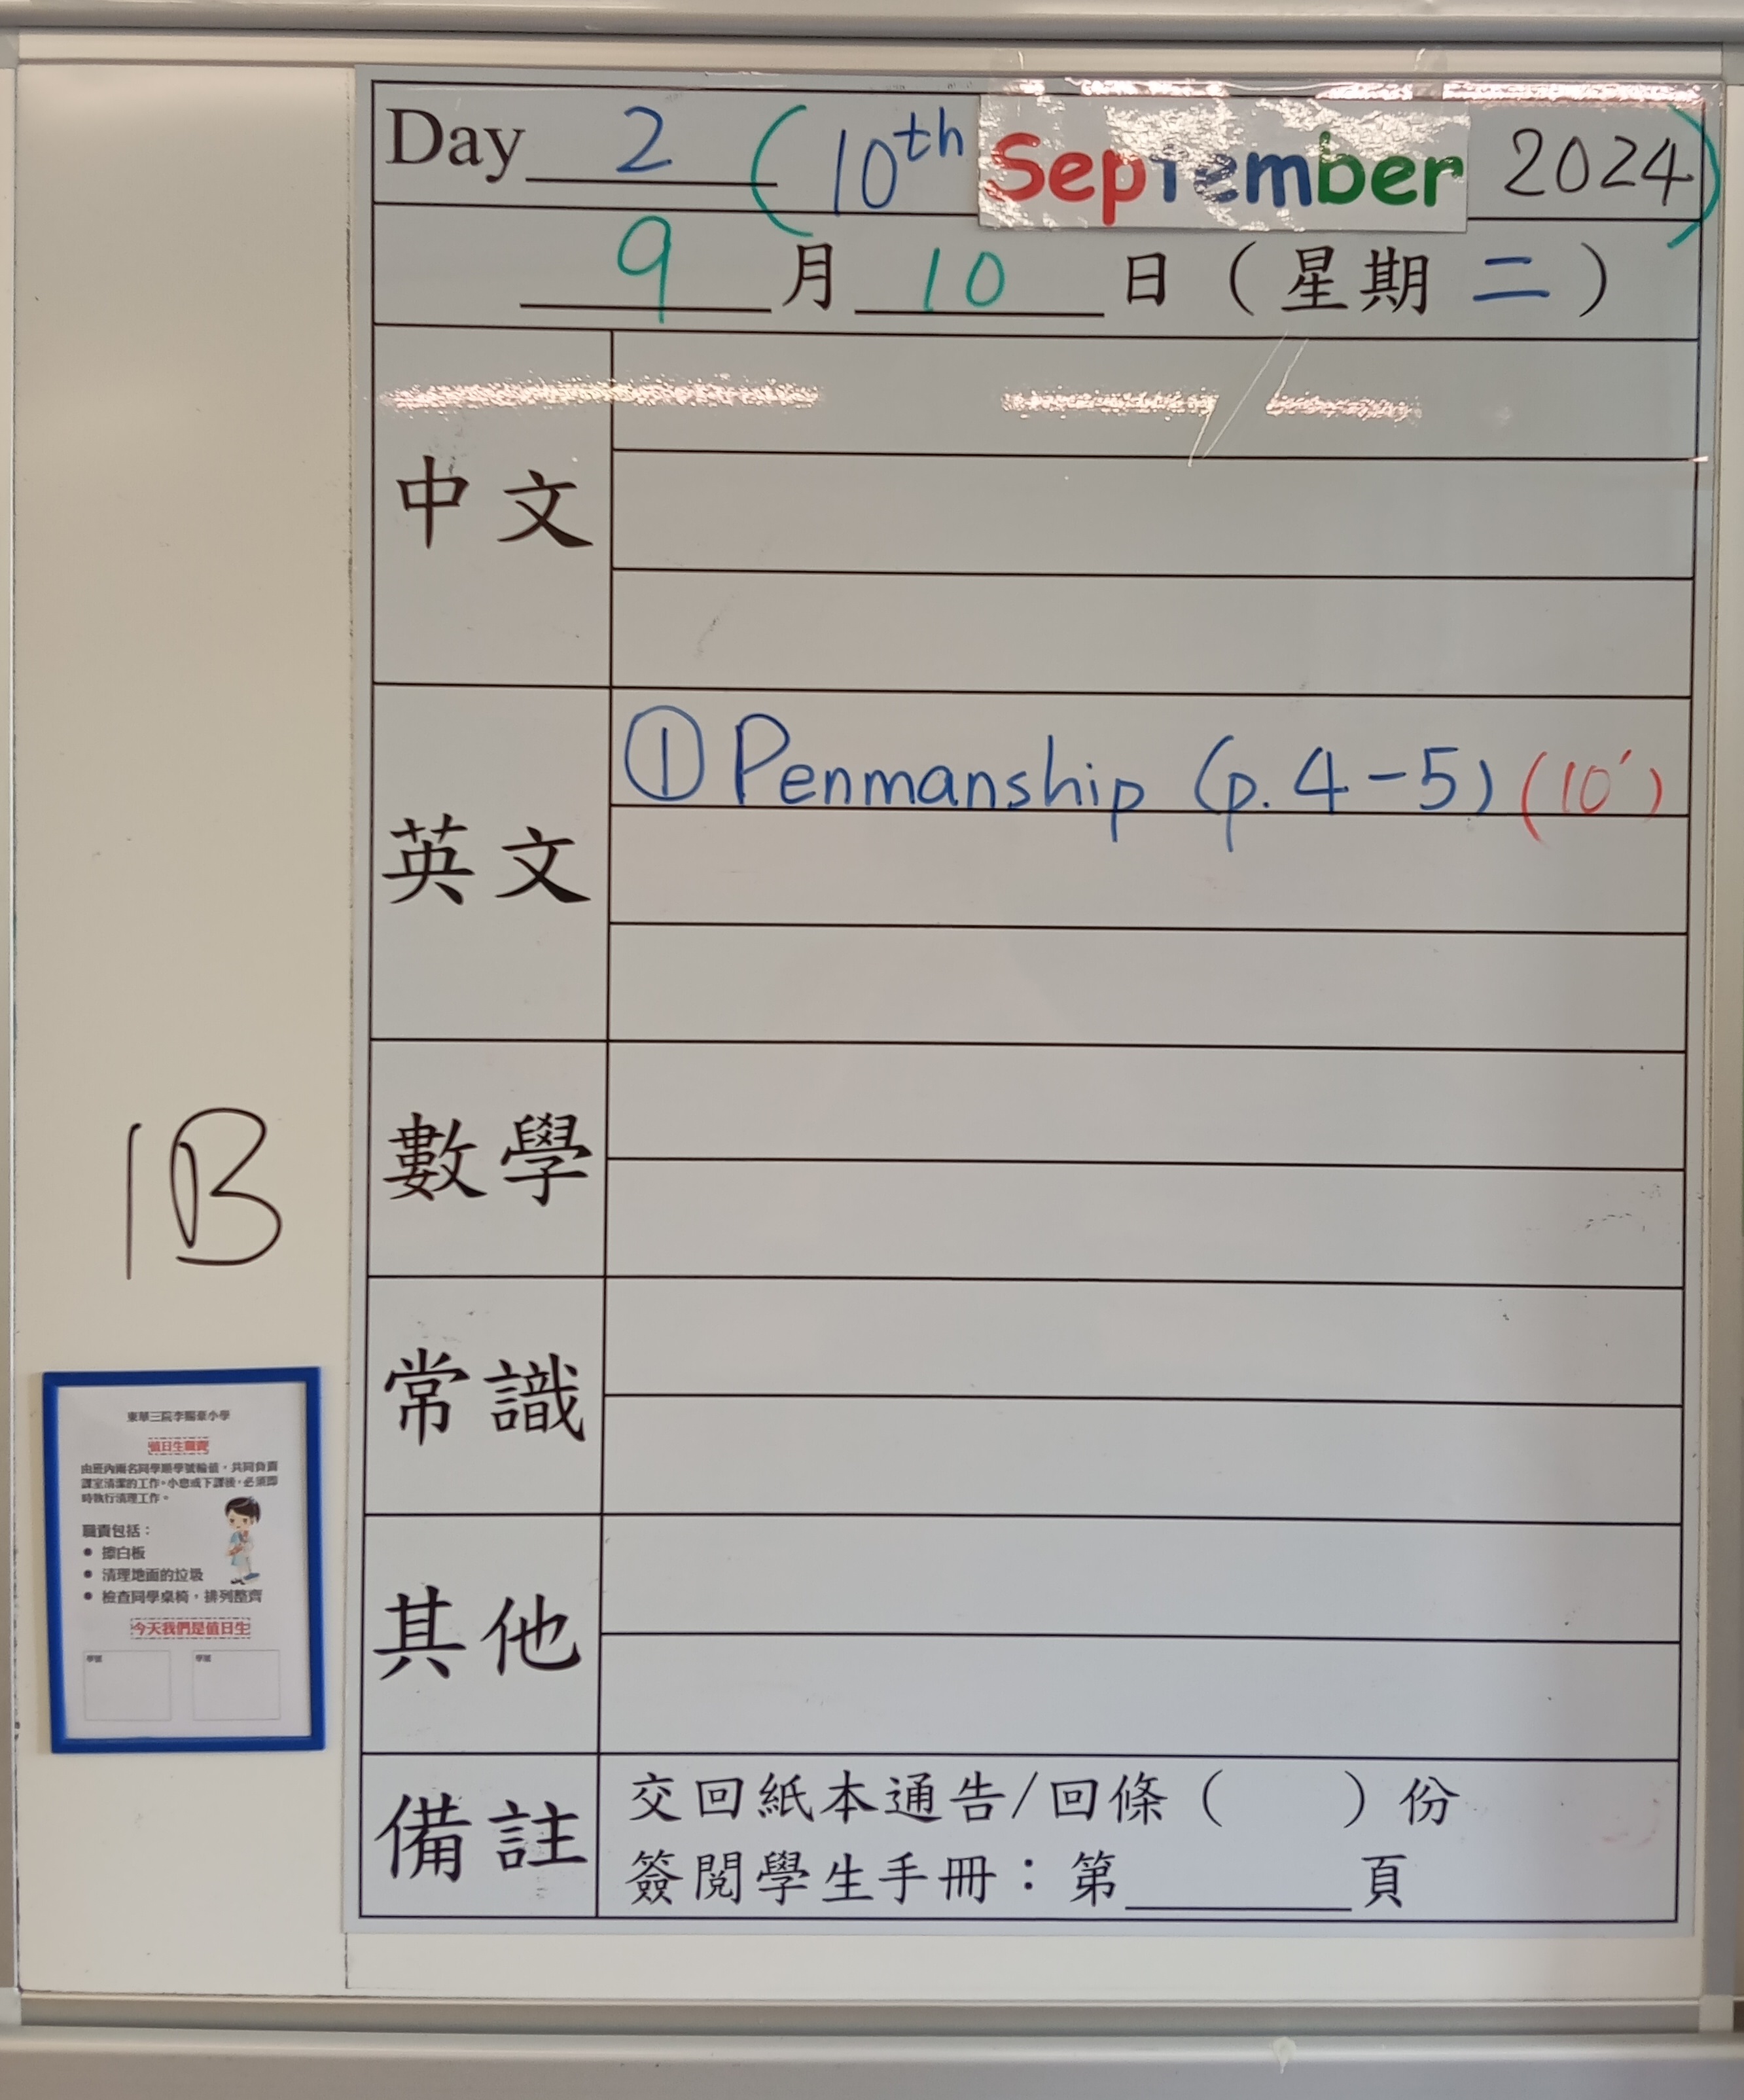 Day 2 (10th September 2024)
9月10日(星期二)
中文
英文
① Penmanship (p. 4-5) (10')
數學
常識
其他
備註
交回紙本通告/回條( )份
簽閱學生手冊:第______頁
1B
東華三院李賜豪小學
值日生職責
由班內兩名同學順學號輪值,共同負責
課室清潔的工作。小息或下課後,必須即
時執行清理工作。
職責包括:
● 擦白板
● 清理地面的垃圾
● 檢查同學桌椅,排列整齊
今天我們是值日生
學號 學號